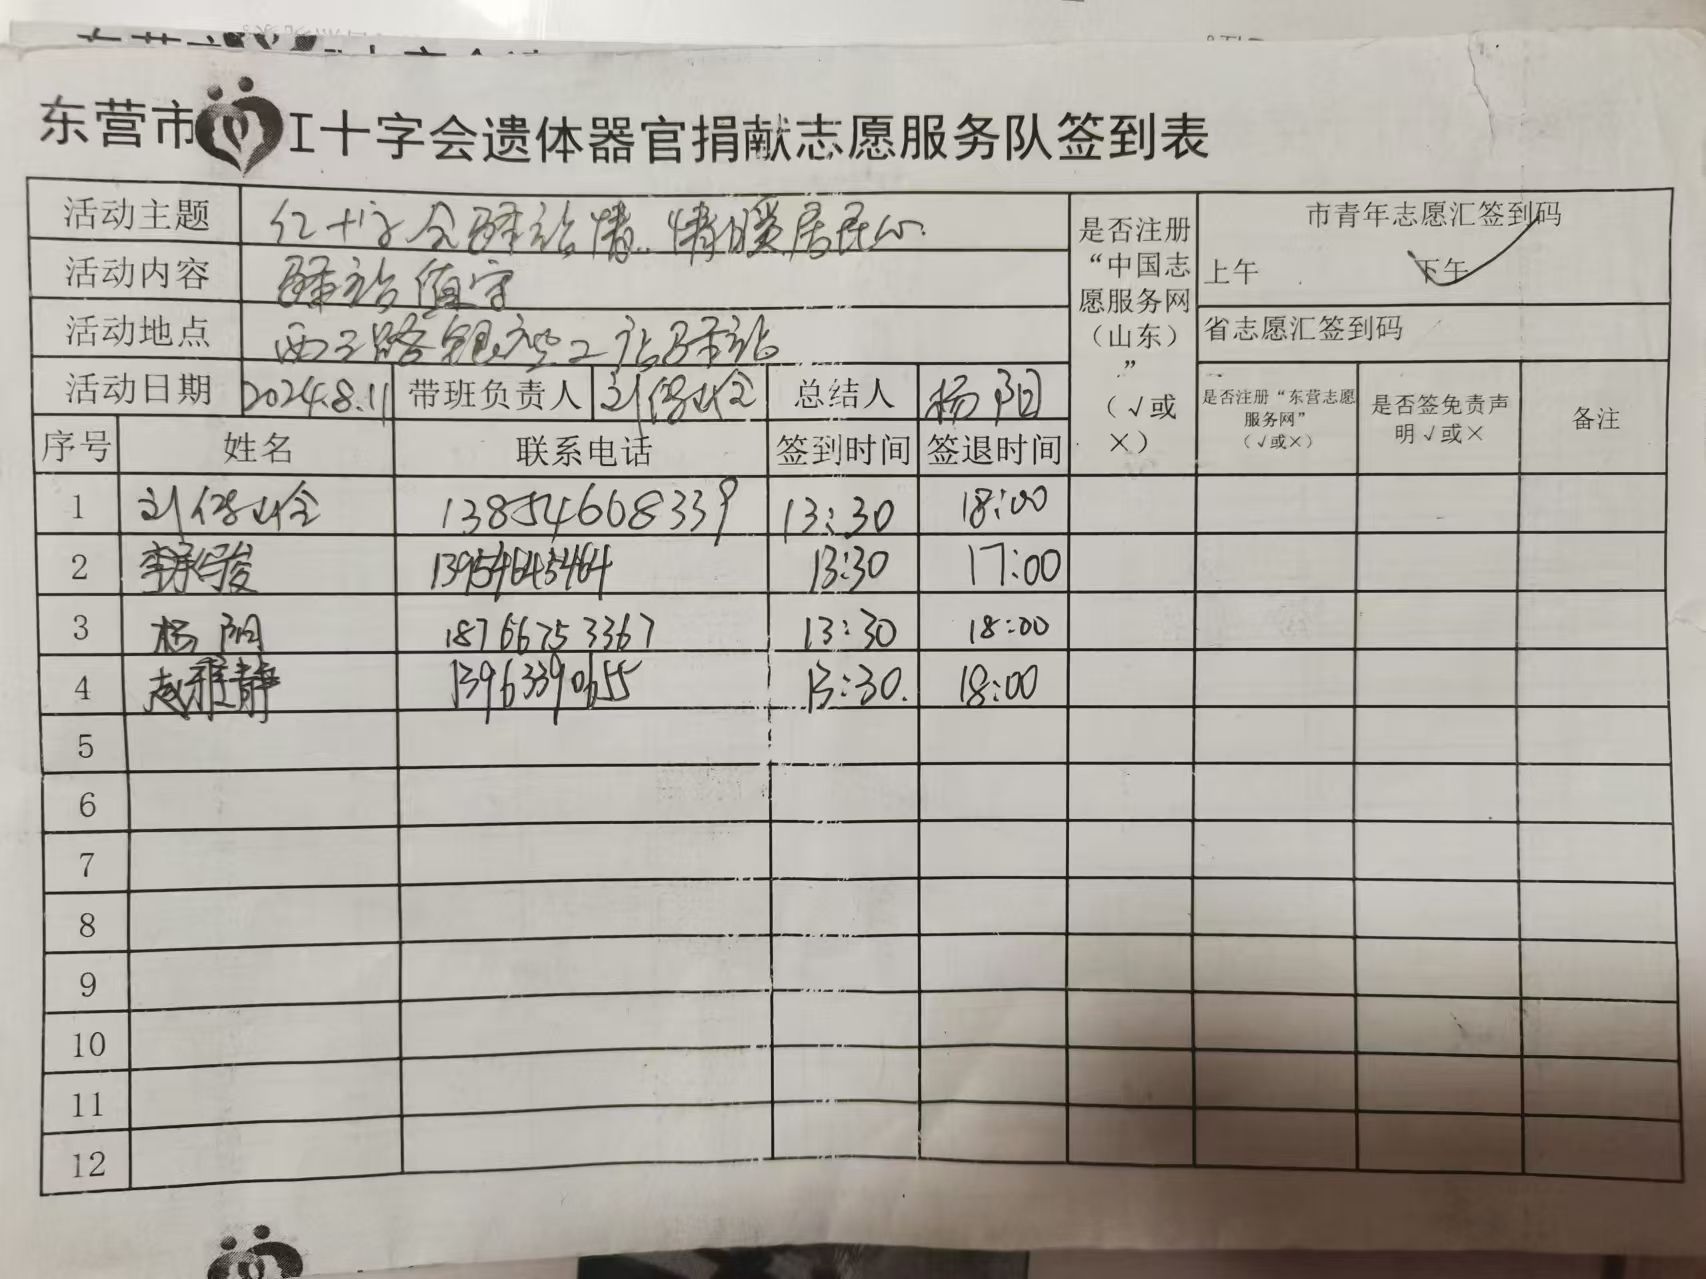 东营市工十字会遗体器官捐献志愿服务队签到表
活动主题 红十字会驿站情.情暖居民心.
活动内容 驿站值守
活动地点 西三路 驿站
活动日期 2024.8.11 带班负责人 刘 总结人 杨阳
是否注册“中国志愿服务网（山东）”（√或×）
市青年志愿汇签到码
上午 下午 √
省志愿汇签到码
是否注册“东营志愿服务网”（√或×）
是否签免责声明√或×
备注
序号 姓名 联系电话 签到时间 签退时间
1 刘 13854668339 13:30 18:00
2 李 13954645464 13:30 17:00
3 杨阳 18766753367 13:30 18:00
4 赵雅静 13963390655 13:30. 18:00
5
6
7
8
9
10
11
12